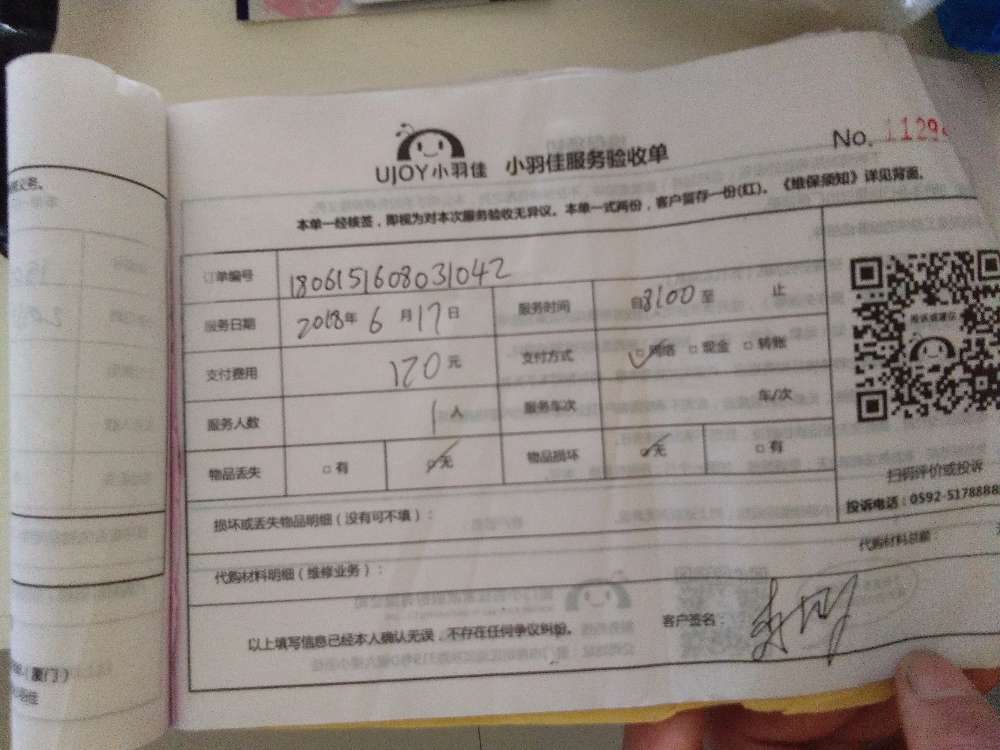 No. 1129
UJOY小羽佳 小羽佳服务验收单
本单一经核签，即视为对本次服务验收无异议。本单一式两份，客户留存一份(红)。《维保须知》详见背面。
订单编号 1806151608031042
服务日期 2018年 6 月 17 日 服务时间 自8:00至 止
支付费用 120 元 支付方式 ☑网络 □现金 □转账
服务人数 1 人 服务车次 车/次
物品丢失 □有 ☑无 物品损坏 ☑无 □有
扫码评价或投诉
投诉电话：0592-5178888
损坏或丢失物品明细（没有可不填）：
代购材料明细（维修业务）： 代购材料总额：
以上填写信息已经本人确认无误，不存在任何争议纠纷。 客户签名：
（厦门）